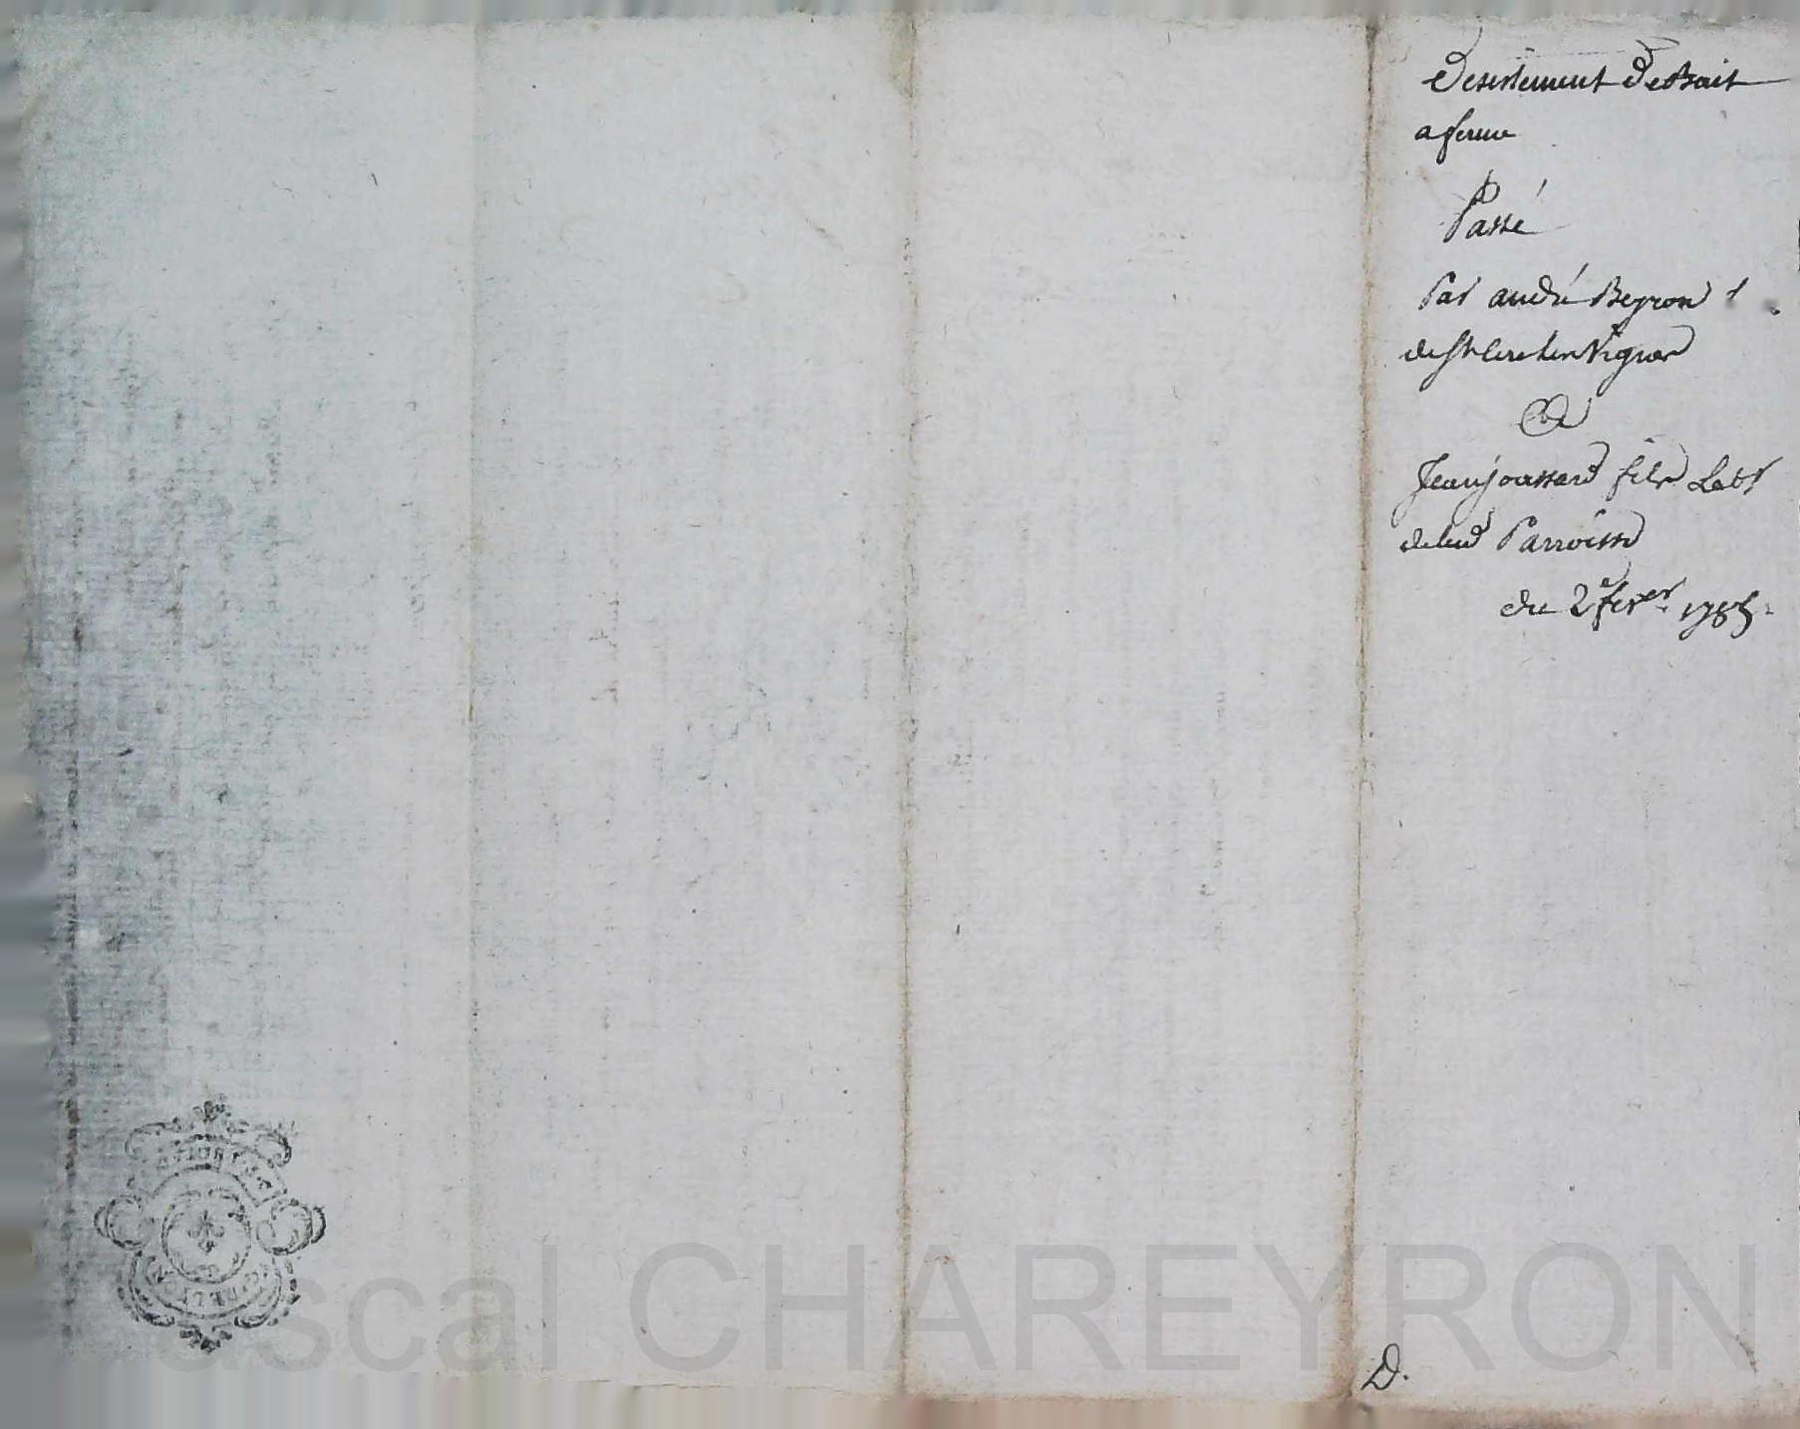 Desistement De Bail
a ferme
Passé
Par andré Beyron
de St Cire les Vignes
a
Jean joassard fils Labr
de lad Parroisse
du 2e fevrer 1785.
D.
ascal CHAREYRON